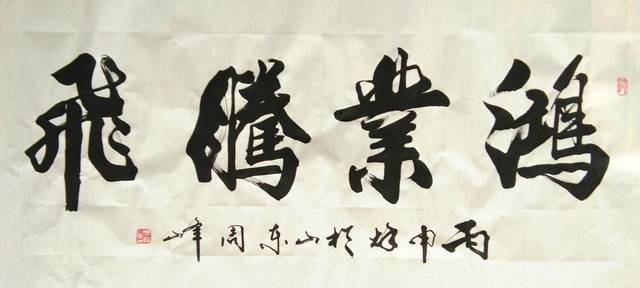 鴻業騰飛
丙申於山东周峰